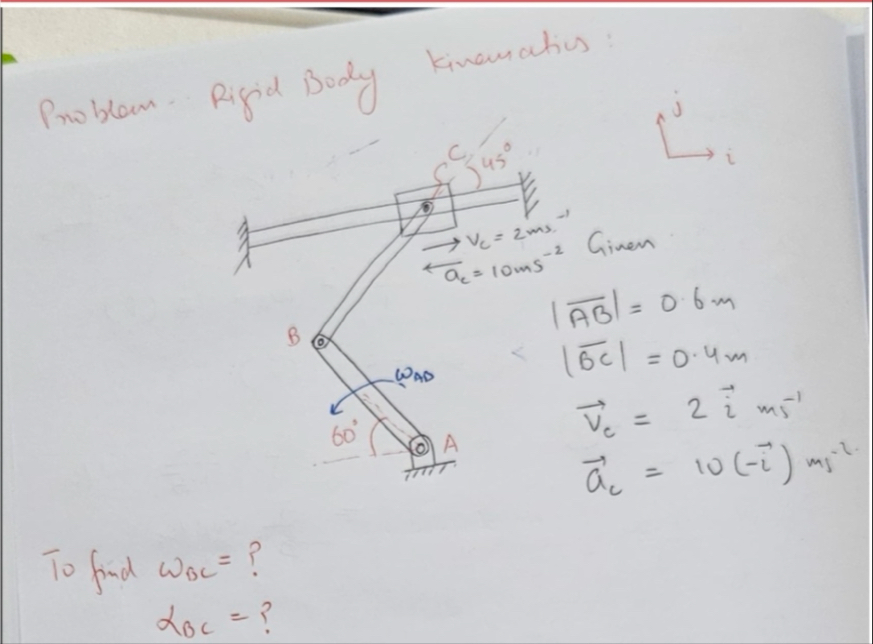 Problem - Rigid Body Kinematics :
j
i
C
45°
v_c = 2ms⁻¹
a_c = 10ms⁻² Given
B
ω_AB
60°
A
|AB| = 0.6m
|BC| = 0.4m
v⃗_c = 2 i⃗ ms⁻¹
a⃗_c = 10 (-i⃗) ms⁻².
To find ω_BC = ?
α_BC = ?